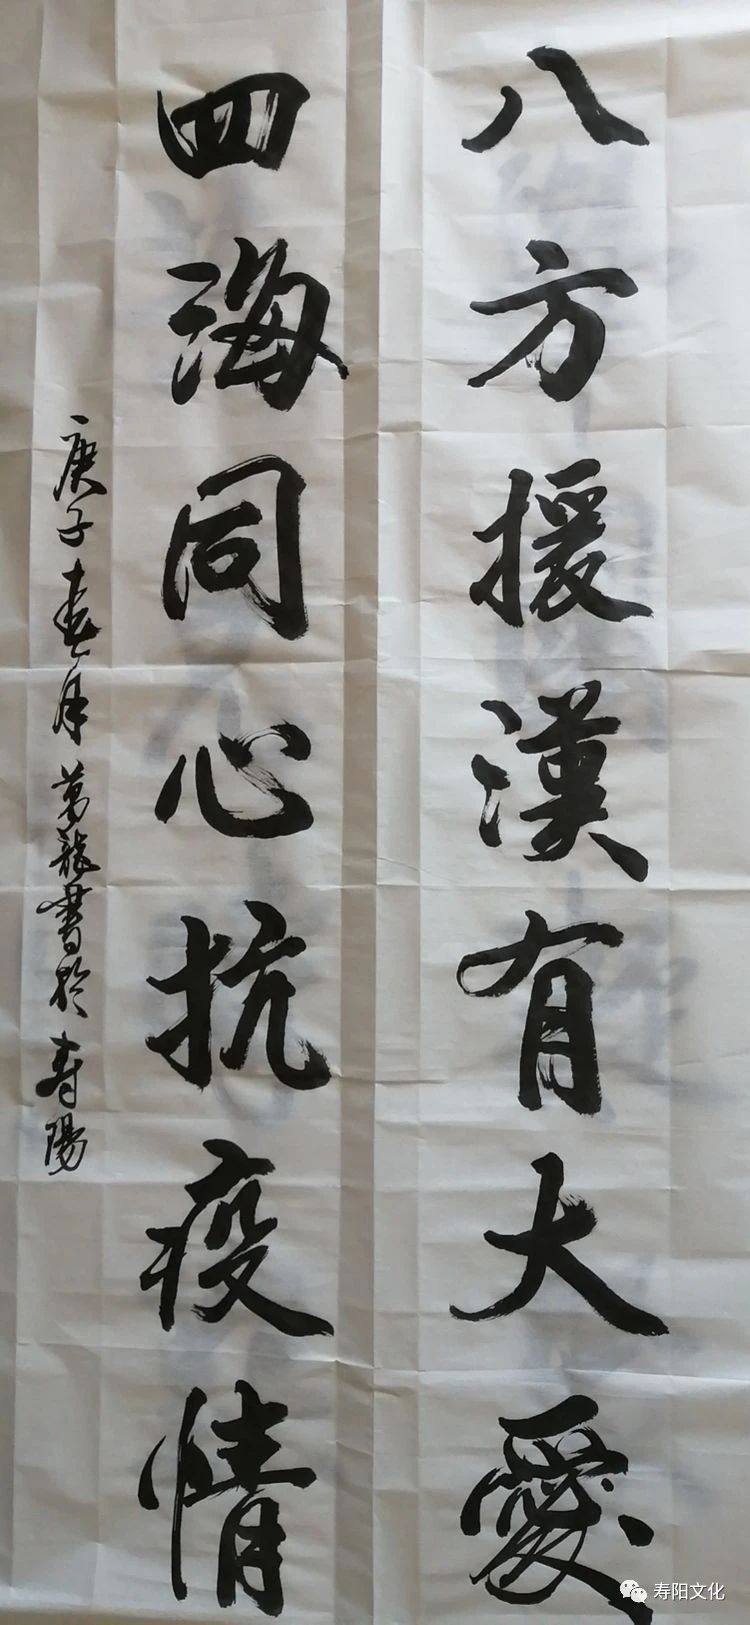 八方援漢有大愛
四海同心抗疫情
庚子春月萬龍書於寿陽
寿阳文化